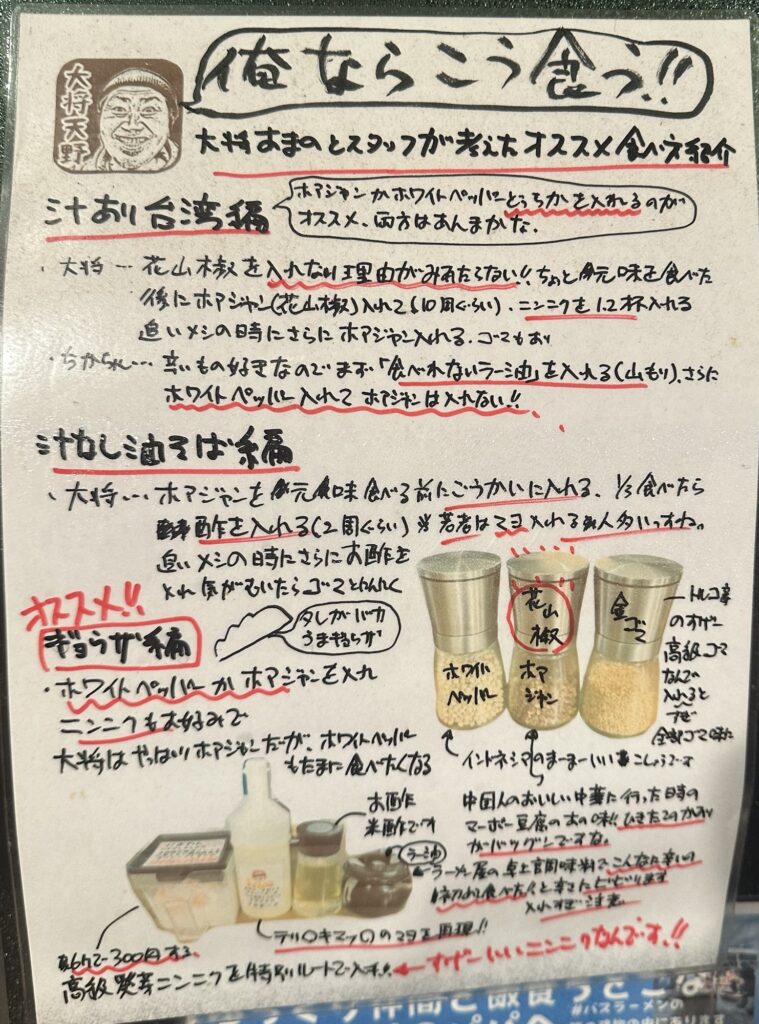 大将天野
俺ならこう食う!!
大将あまのとスタッフが考えたオススメ食べ方紹介
汁あり台湾編
ホアジャンかホワイトペッパーどっちかを入れるのが
オススメ、両方はあんまかな。
・大将… 花山椒を入れない理由がみあたらない!! ちょと元味を食べた
後にホアジャン(花山椒)入れて(10周ぐらい)、ニンニクを1.2杯入れる
追いメシの時にさらにホアジャン入れる、ゴマもあり
・ちかちゃん… 辛いもの好きなのでまず「食べれないラー油」を入れる(山もり)、さらに
ホワイトペッパー入れてホアジャンは入れない!!
汁なし油そば編
・大将… ホアジャンを元味食べる前にごうかいに入れる、1/3食べたら
酢を入れる(2周ぐらい) ※若者はマヨ入れる人多いっすね。
追いメシの時にさらにお酢を
入れ気がむいたらゴマとにんにく
オススメ!!
ギョウザ編
タレがバカ
うまぎょうざ
・ホワイトペッパーかホアジャンを入れ
ニンニクもお好みで
大将はやっぱりホアジャンだが、ホワイトペッパー
もたまに食べたくなる
ホワイト
ペッパー
花山
椒
ホア
ジャン
金ゴマ
トルコ産
のすげー
高級ゴマ
なんで
入れると
全部ゴマ味に
インドネシアのまーまーいいこしょうです
中国人のおいしい中華に行った時の
マーボー豆腐のあの味!! ひきたてのかおり
がバツグンですな。
ラーメン屋の卓上調味料でこんなに辛いの
初めて食べたくと辛さにビビります
入れすぎ注意
お酢
米酢です
ラー油
テリ〇キマッ〇のマヨを再現!!
高級発芽ニンニクを特別ルートで入手!!
すげーいいニンニクなんです!!
#バスラーメンの